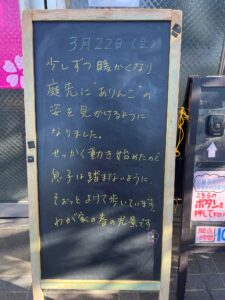 3月22日(金)
少しずつ暖かくなり
庭先に"ありんこ"の
姿を見かけるように
なりました。
せっかく動き始めたので
息子は踏まないように
そぉっとよけて歩いています。
わが家の春の光景です
こちらの
ボタンを
押して下さい